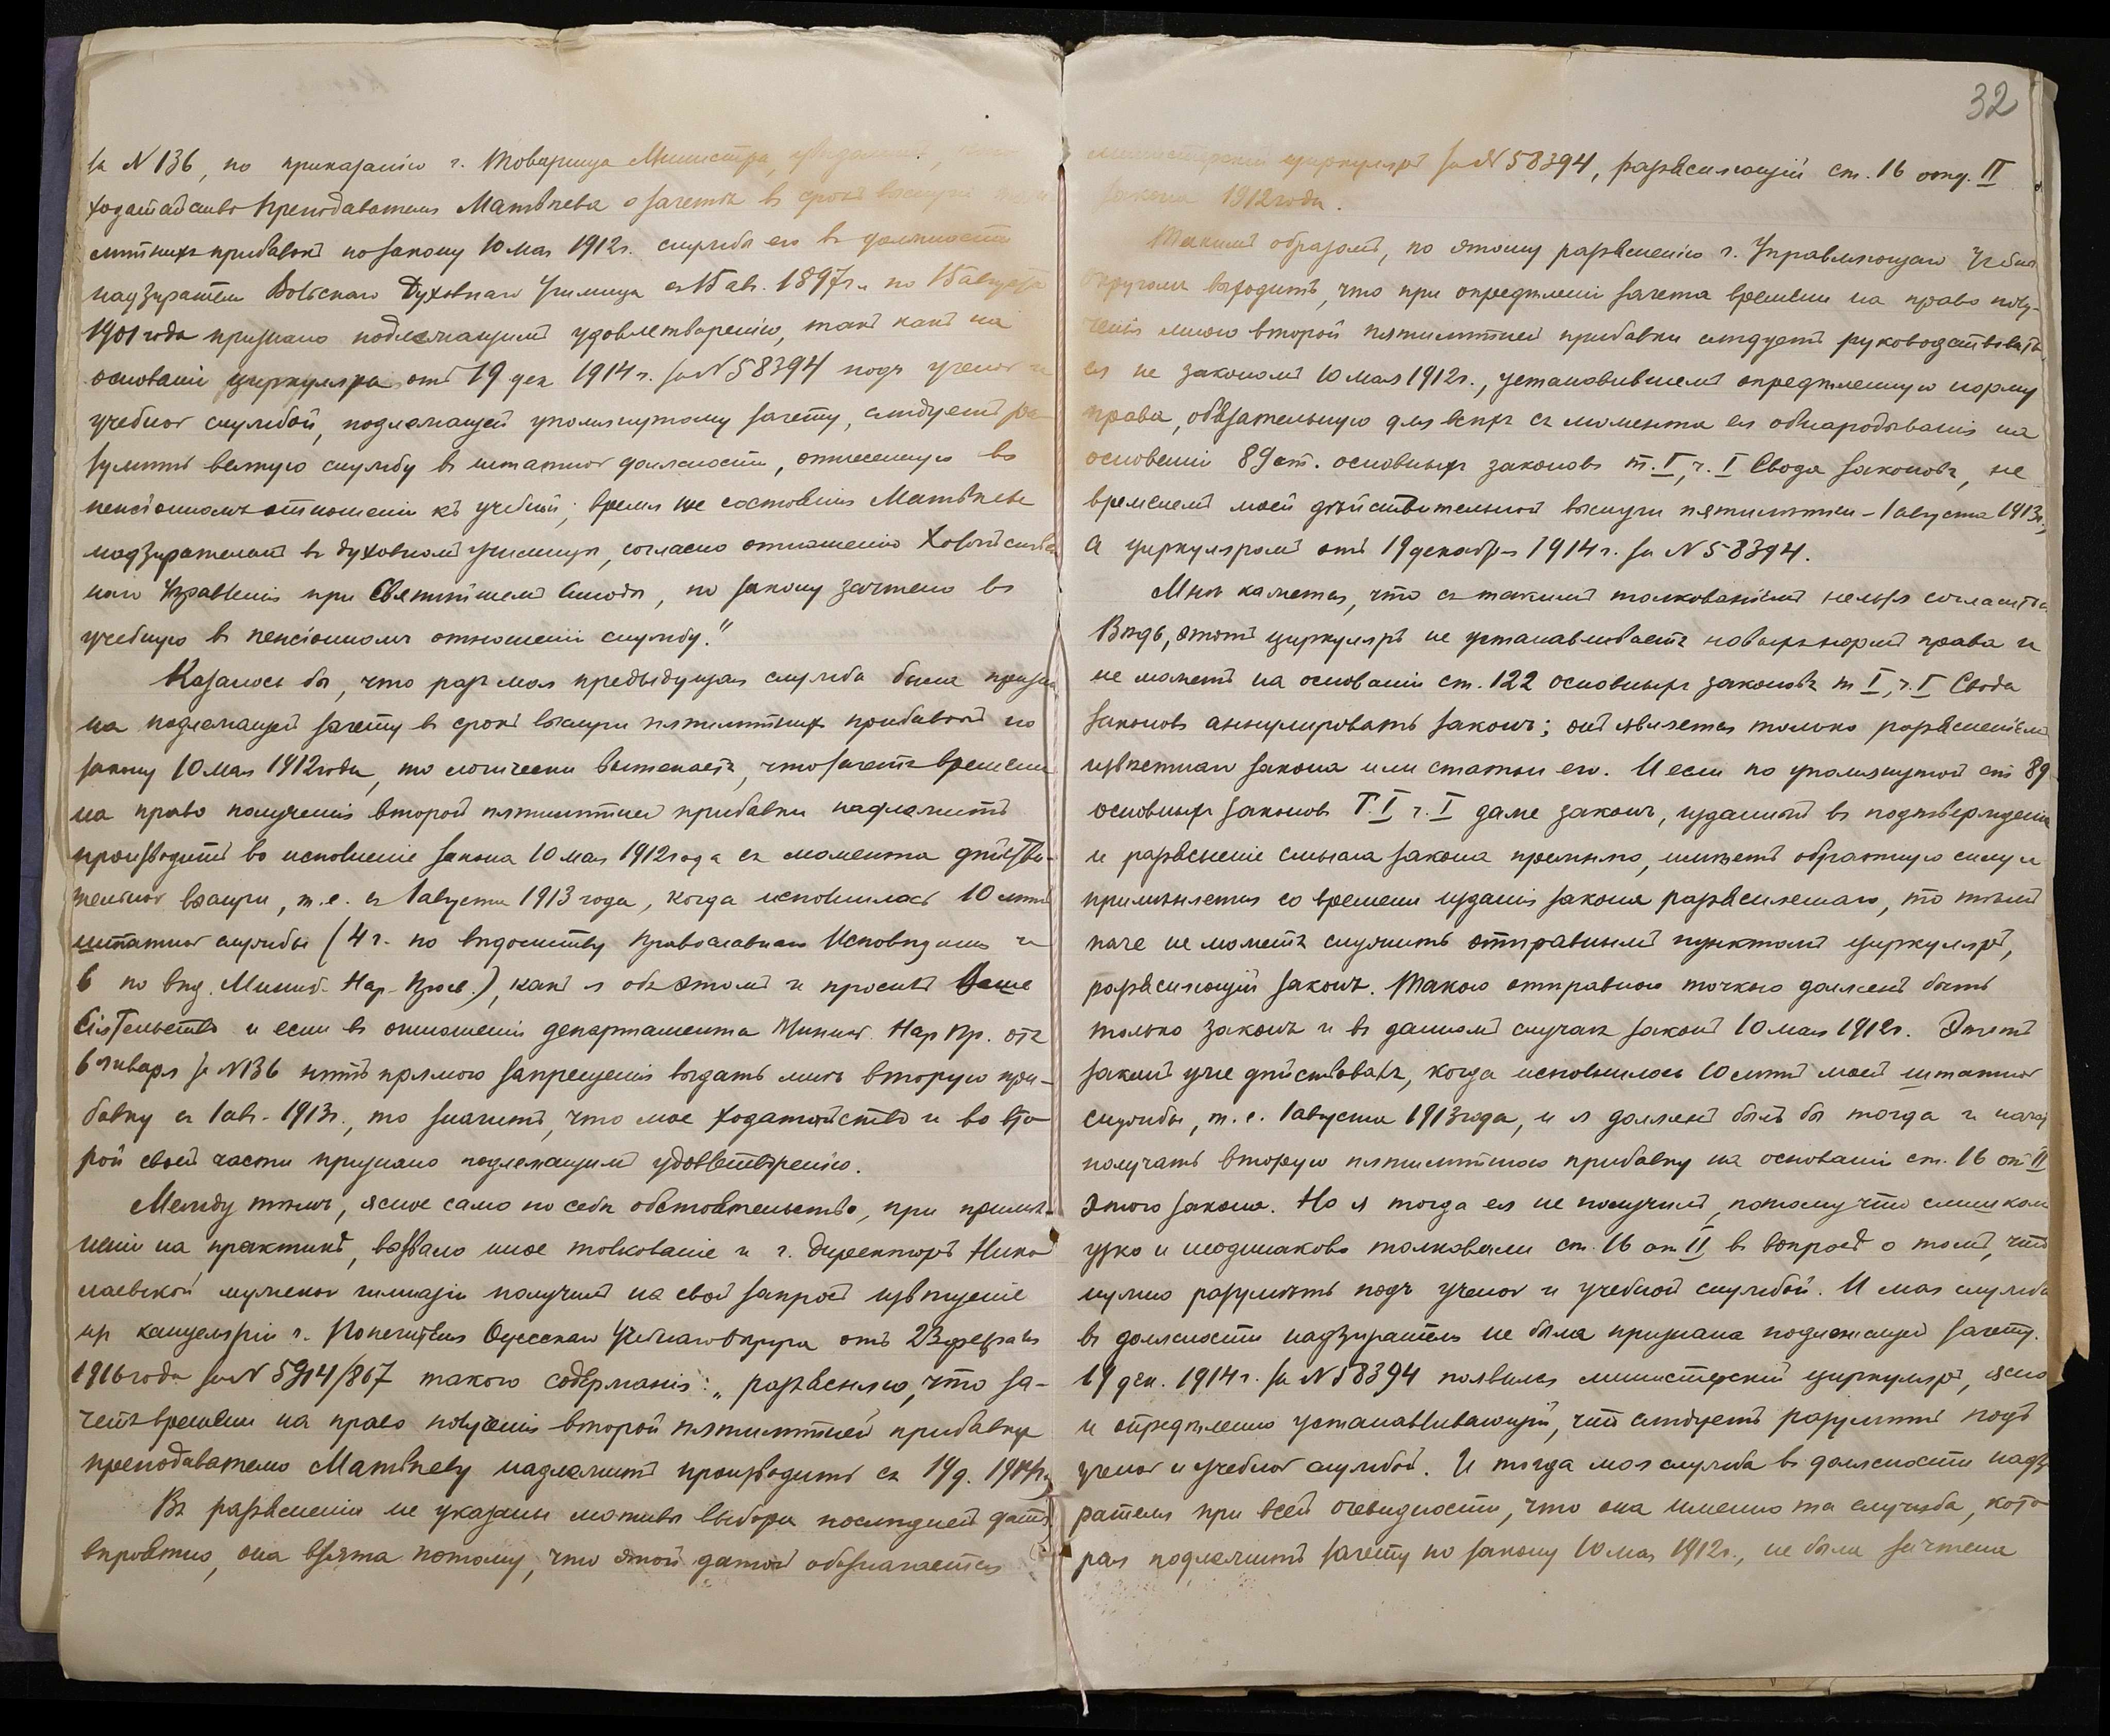 за N 136, по приказанію г. Товарища Министра, увѣдомилъ, что
ходатайство преподавателя Матвѣева о зачетѣ въ срокъ выслуги пяти-
лѣтнихъ прибавокъ по закону 10 мая 1912г. службы его въ должности
надзирателя Вольскаго Духовнаго Училища съ 15 ав. 1897г. по 15 августа
1901 года признано подлежащимъ удовлетворенію, такъ какъ на
основаніи циркуляра отъ 19 дек 1914г. за N 58394 подъ ученой и
учебной службой, подлежащей упомянутому зачету, слѣдуетъ ра-
зумѣть всякую службу въ штатной должности, отнесенную въ
пенсіонномъ отношеніи къ учебной; время же состоянія Матвѣева
надзирателемъ въ духовномъ училищѣ, согласно отношенію Хозяйствен-
наго Управленія при Святѣйшемъ Синодѣ, по закону зачтено въ
учебную въ пенсіонномъ отношеніи службу."
Казалось бы, что разъ моя предыдущая служба была призна-
на подлежащей зачету въ срокъ выслуги пятилѣтнихъ прибавокъ по
закону 10 мая 1912 года, то логически вытекаетъ, что зачетъ времени
на право полученія второй пятилѣтней прибавки надлежитъ
производить во исполненіе закона 10 мая 1912 года съ момента дѣйстви-
тельной выслуги, т.е. съ 1 августа 1913 года, когда исполнилось 10 лѣтъ
штатной службы (4 г. по вѣдомству Православнаго Исповѣданія и
6 по вѣд. Минист. Нар. Просв.), какъ я объ этомъ и просилъ Ваше
Сіятельство и если въ отношеніи департамента Минист. Нар Пр. отъ
6 января за N 136 нѣтъ прямого запрещенія выдать мнѣ вторую при-
бавку съ 1 ав. 1913г., то значитъ, что мое ходатайство и во вто-
рой своей части признано подлежащимъ удовлетворенію.
Между тѣмъ, ясное само по себѣ обстоятельство, при примѣ-
неніи на практикѣ, вызвало иное толкованіе и г. Директоръ Нико-
лаевской мужской гимназіи получилъ на свой запросъ извѣщеніе
изъ канцеляріи г. Попечителя Одесскаго Учебнаго Округа отъ 23 февраля
1916 года за N 5914/867 такого содержанія: „разъясняю, что за-
четъ времени на право полученія второй пятилѣтней прибавки
преподавателю Матвѣеву надлежитъ производить съ 19 д. 1914г."
Въ разъясненіи не указаны мотивы выбора послѣдней даты
вѣроятно, она взята потому, что этой датой обозначается
32
министерскій циркуляръ за N 58394, разъясняющій ст. 16 отд. II
закона 1912 года.
Такимъ образомъ, по этому разъясненію г. Управляющаго Учебн
Округомъ выходитъ, что при опредѣленіи зачета времени на право полу-
ченія мною второй пятилѣтней прибавки слѣдуетъ руководствовать-
ся не закономъ 10 мая 1912г., установившемъ опредѣленную норму
права, обязательную для всѣхъ съ момента ея обнародыванія на
основаніи 89 ст. основныхъ законовъ т. I, ч. I Свода законовъ, не
временемъ моей дѣйствительной выслуги пятилѣтки - 1 августа 1913г.,
а циркуляромъ отъ 19 декабря 1914г. за N 58394.
Мнѣ кажется, что съ такимъ толкованіемъ нельзя согласиться
Вѣдь, этотъ циркуляръ не устанавливаетъ новыхъ нормъ права и
не можетъ на основаніи ст. 122 основныхъ законовъ т I, ч. I Свода
законовъ аннулировать законъ; онъ является только разъясненіемъ
извѣстнаго закона или статьи его. И если по упомянутой ст 89
основныхъ законовъ Т. I ч. I даже законъ, изданный въ подтвержденіе
и разъясненіе смысла закона прежняго, имѣетъ обратную силу и
примѣняется со времени изданія закона разъясняемаго, то тѣмъ
паче не можетъ служить отправнымъ пунктомъ циркуляръ,
разъясняющій законъ. Такою отправною точкою долженъ быть
только законъ и въ данномъ случаѣ законъ 10 мая 1912г. Этотъ
законъ уже дѣйствовалъ, когда исполнилось 10 лѣтъ моей штатной
службы, т.е. 1 августа 1913 года, и я долженъ былъ бы тогда и начать
получать вторую пятилѣтнюю прибавку на основаніи ст. 16 от II
этого закона. Но я тогда ея не получилъ, потому что слишкомъ
узко и неодинаково толковали ст. 16 от II въ вопросѣ о томъ, что
нужно разумѣть подъ ученой и учебной службой. И моя служба
въ должности надзирателя не была признана подлежащей зачету.
19 дек. 1914г. за N 58394 появился министерскій циркуляръ, ясно
и опредѣленно устанавливающій, что слѣдуетъ разумѣть подъ
ученой и учебной службой. И тогда моя служба въ должности надзи-
рателя при всей очевидности, что она именно та служба, кото-
рая подлежитъ зачету по закону 10 мая 1912г., не была зачтена